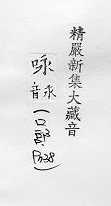 精嚴新集大藏音
咏
音永
口部